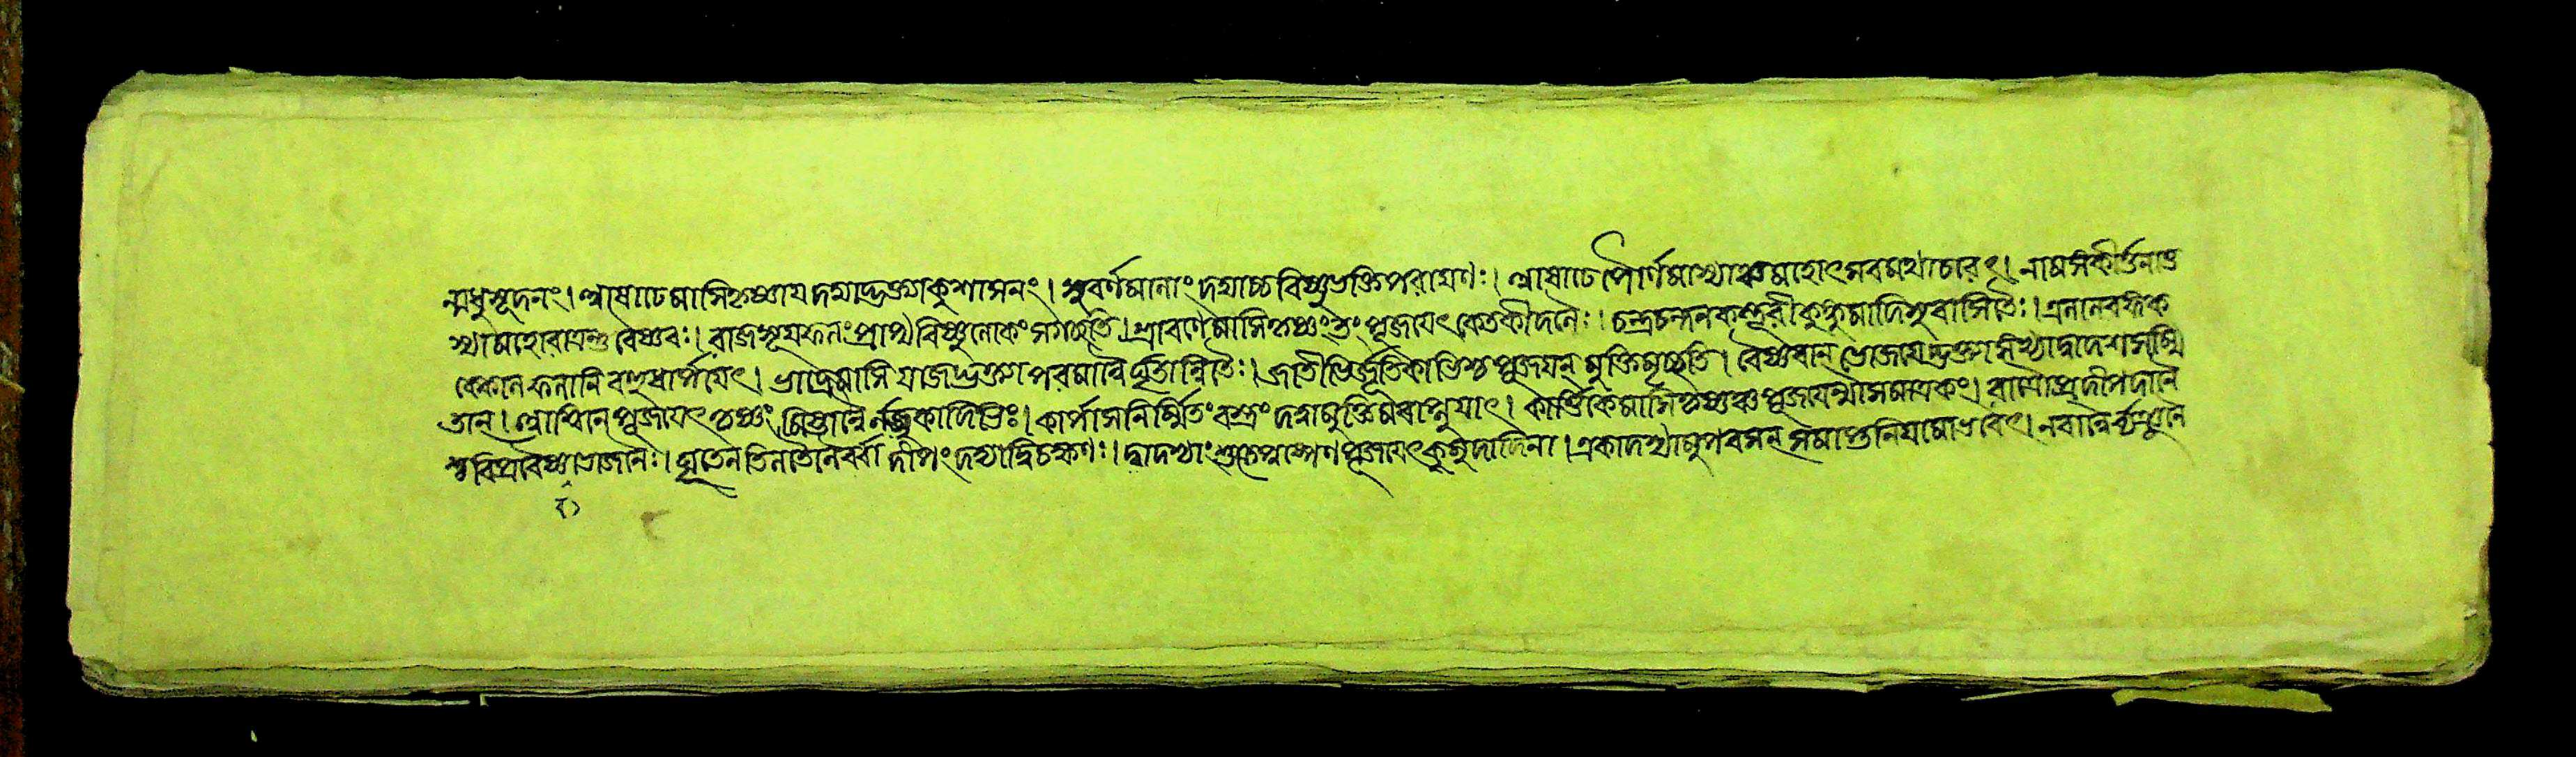 ন্মধুসূদনং। আষাঢেমাসিকৃষ্ণায়দদ্যাদ্ভক্ত্যাকুশাসনং। সুবর্ণমানাংদদ্যাচ্চবিষ্ণুভক্তিপরায়ণঃ। আষাঢেপৌর্ণমাস্যাঞ্চমহোৎসবমথাচারৎ। নামসংকীর্ত্তনাভ্র
শ্যামাহোরাত্রন্তুবৈষ্ণবঃ। রাজসূয়ফলংপ্রাপ্যবিষ্ণুলোকংসগচ্ছতি। শ্রাবণেমাসিকৃষ্ণংতংপূজয়েৎকেতকীদলৈঃ। চন্দ্রচন্দনকস্তূরীকুঙ্কুমাদিসুবাসিতৈঃ। এলালবঙ্গক
ক্কোলফলানিবহুধার্পয়েৎ। ভাদ্রেমাসিযজেদ্ভক্ত্যাপরমান্নৈর্ঘৃতান্বিতৈঃ। জাতীভির্জূতিকাভিশ্চপূজয়ন্মুক্তিমৃচ্ছতি। বৈষ্ণবান্ভোজয়েদ্ভক্ত্যাসংখ্যাদ্বাদশসম্মি
তান্। আশ্বিনেপূজয়েৎকৃষ্ণংমিষ্টান্নৈর্লড্ডুকাদিভিঃ। কার্পাসনির্ম্মিতংবস্ত্রংদত্বামুক্তিমবাপ্নুয়াৎ। কার্ত্তিকেমাসিকৃষ্ণঞ্চপূজয়েন্মাসমাত্রকং। রাত্রৌপ্রদীপদানৈ
শ্চবিপ্রবৈষ্ণবভোজনৈঃ। ঘৃতেনতিলতৈলৈর্ব্বাদীপংদদ্যাদ্বিচক্ষণঃ। দ্বাদশ্যাংশুক্লপক্ষেণপূজয়েৎকুমুদাদিনা। একাদশ্যামুপবসন্সমাপ্তনিয়মোভবেৎ। নবান্নৈর্ব্ব